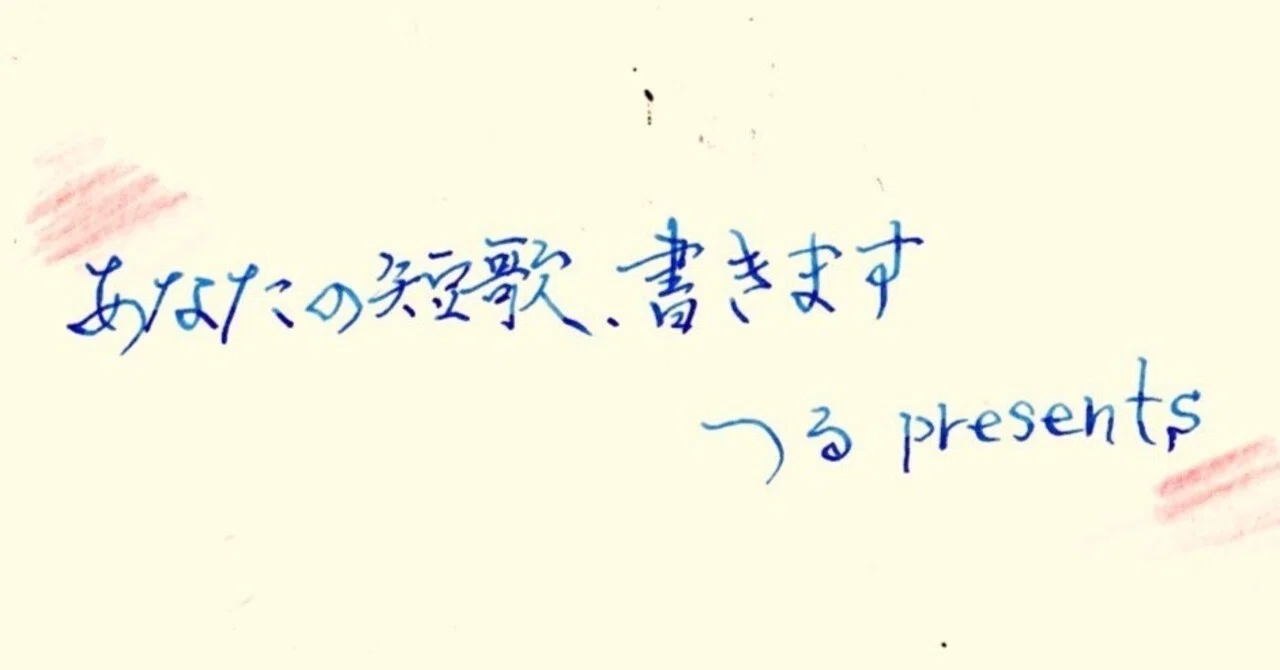 あなたの短歌、書きます
つる presents